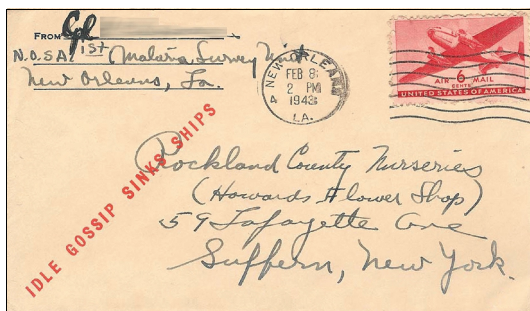 FROM Cpl
N.O.S.A. 1st Malaria Survey Unit
New Orleans, La.
NEW ORLEANS
4
FEB 8
2 PM
1943
LA.
6
CENTS
AIR MAIL
UNITED STATES OF AMERICA
IDLE GOSSIP SINKS SHIPS
Rockland County Nurseries
(Howards Flower Shop)
59 Lafayette Ave
Suffern, New York.